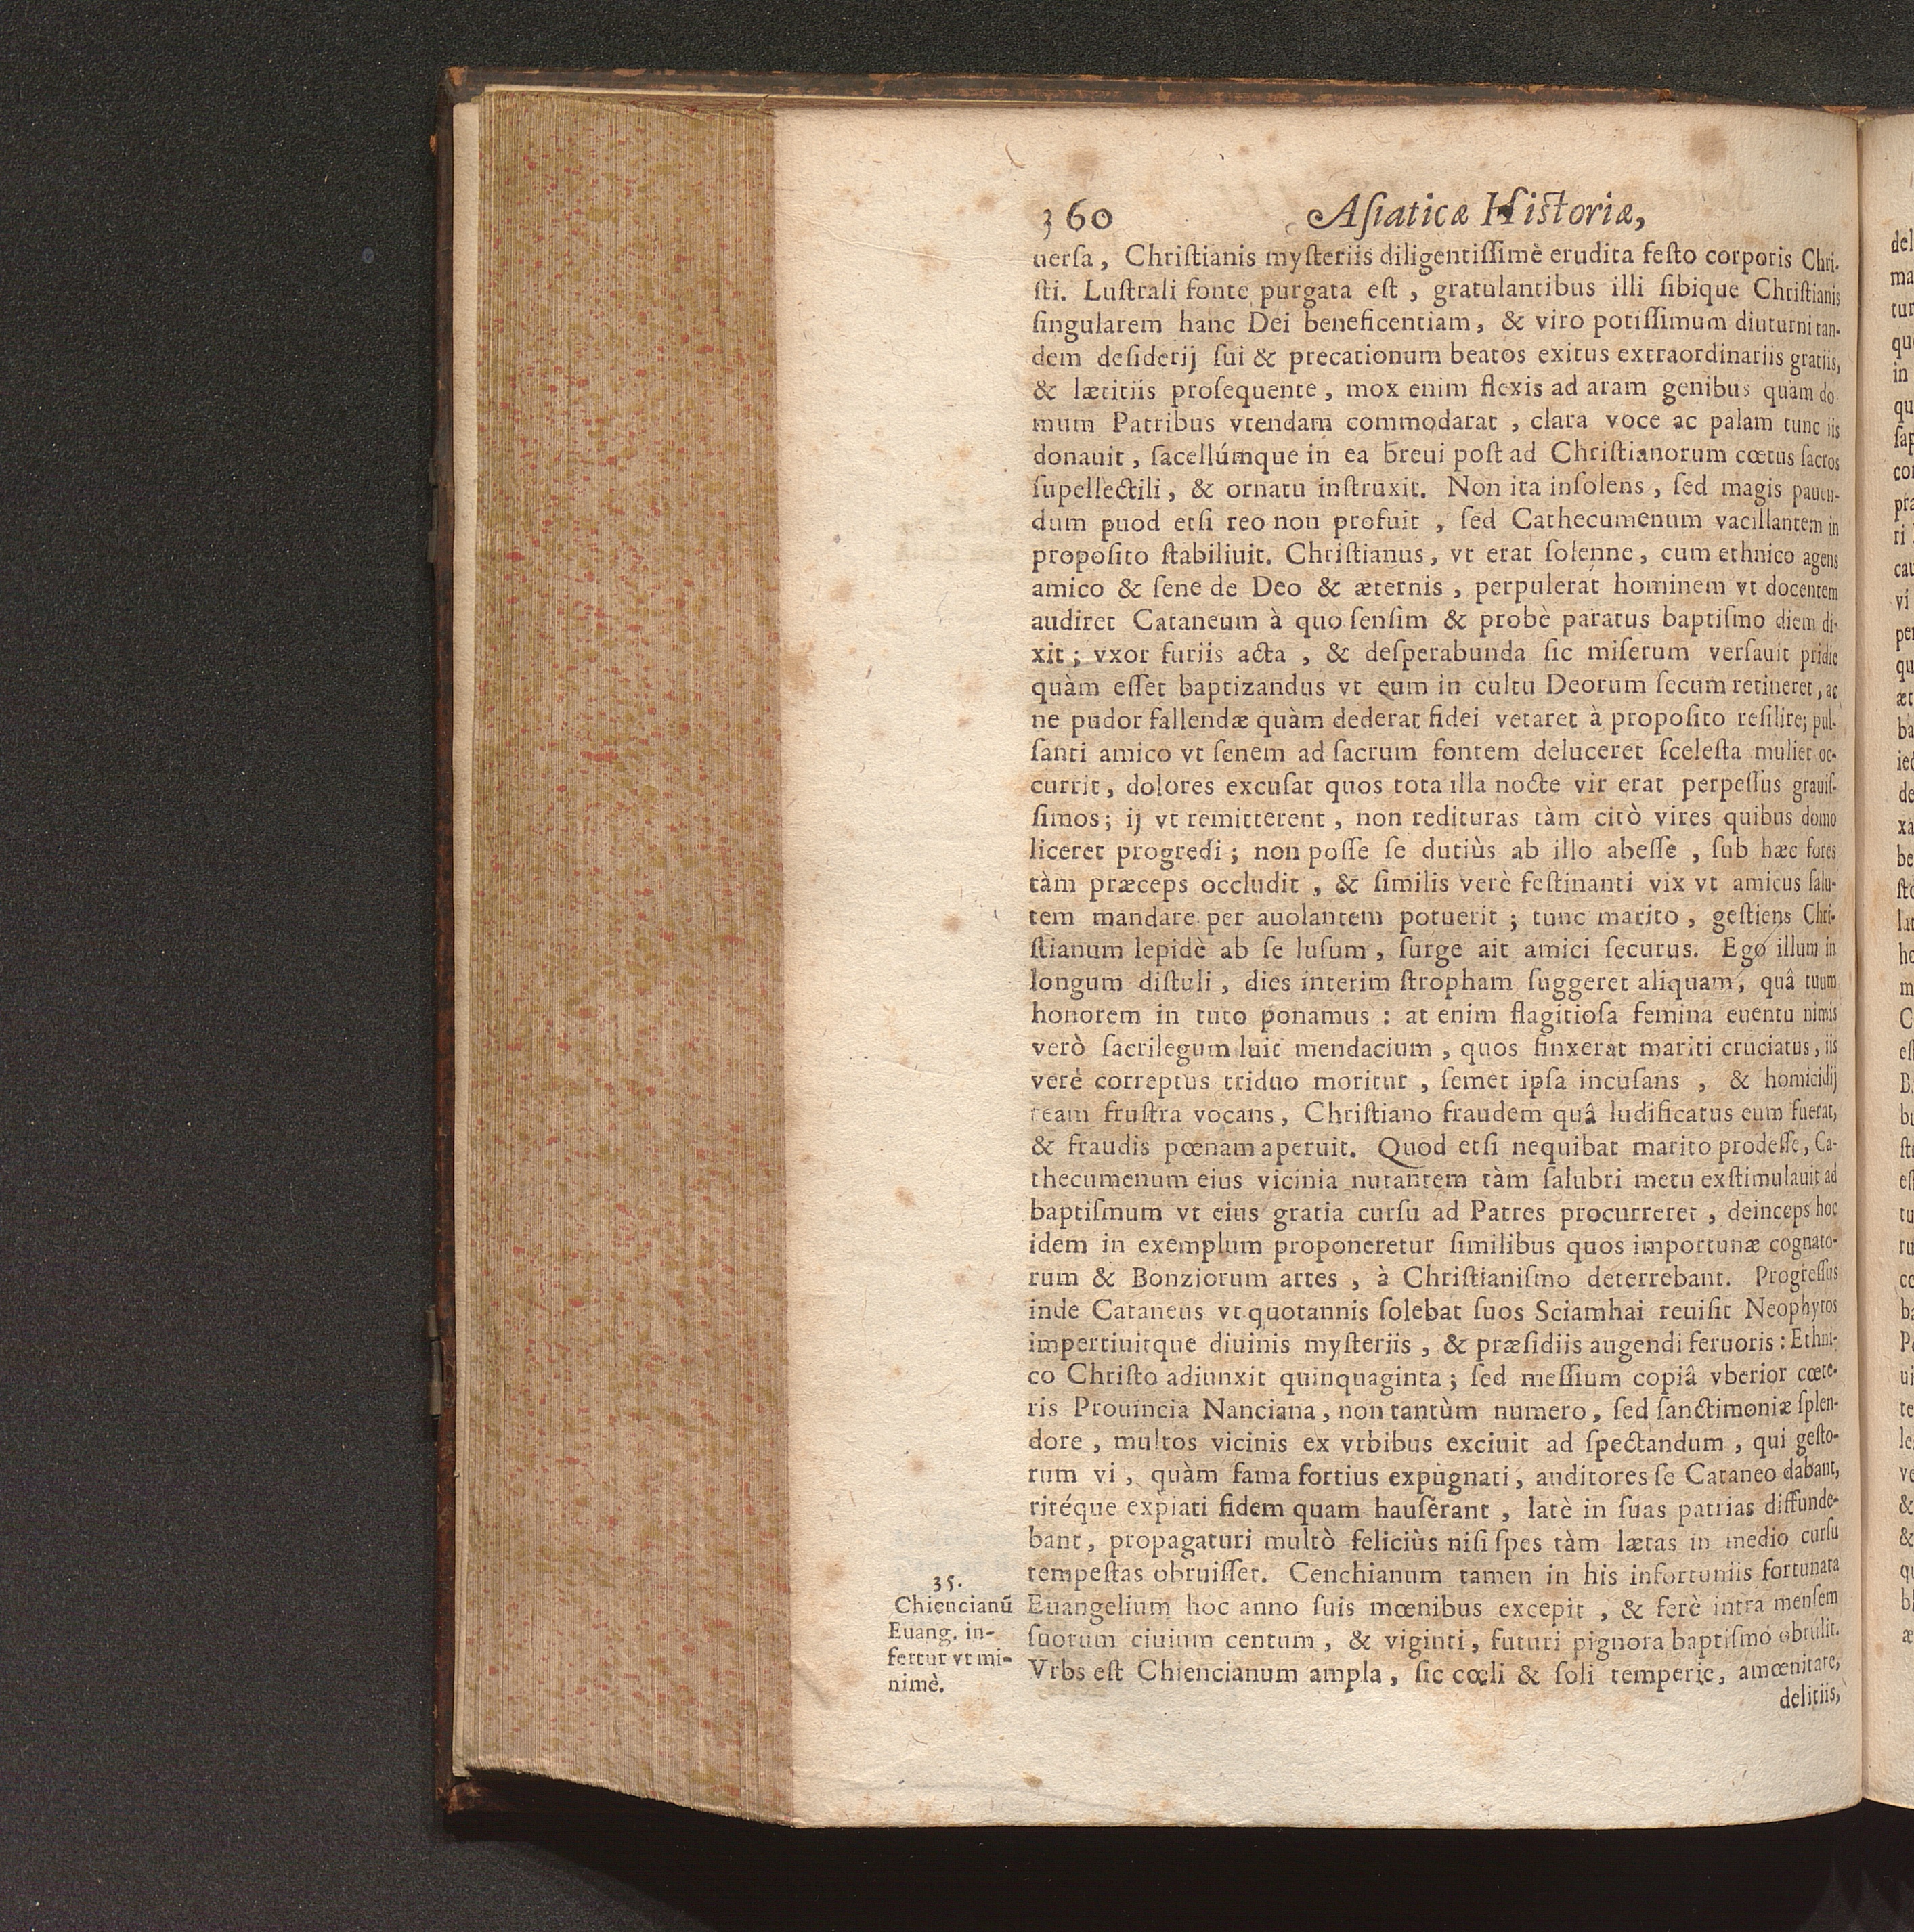 360 Aſiaticæ Hiſtoriæ,
uerſa, Chriſtianis myſteriis diligentiſſimè erudita feſto corporis Chri-
ſti. Luſtrali fonte purgata eſt, gratulantibus illi ſibique Chriſtianis
ſingularem hanc Dei beneficentiam, & viro potiſſimum diuturni tan-
dem deſiderij ſui & precationum beatos exitus extraordinariis gratiis,
& lætitiis proſequente, mox enim flexis ad aram genibus quàm do-
mum Patribus vtendam commodarat, clara voce ac palam tunc iis
donauit, ſacellúmque in ea breui poſt ad Chriſtianorum cœtus ſacros
ſupellectili, & ornatu inſtruxit. Non ita inſolens, ſed magis pauen-
dum puod etſi reo non profuit, ſed Cathecumenum vacillantem in
propoſito ſtabiliuit. Chriſtianus, vt erat ſolenne, cum ethnico agens
amico & ſene de Deo & æternis, perpulerat hominem vt docentem
audiret Cataneum à quo ſenſim & probè paratus baptiſmo diem di-
xit; vxor furiis acta, & deſperabunda ſic miſerum verſauit pridie
quàm eſſet baptizandus vt eum in cultu Deorum ſecum retineret, ac
ne pudor fallendæ quàm dederat fidei vetaret à propoſito reſilire; pul-
ſanti amico vt ſenem ad ſacrum fontem deluceret ſceleſta mulier oc-
currit, dolores excuſat quos tota illa nocte vir erat perpeſſus grauiſ-
ſimos; ij vt remitterent, non redituras tàm citò vires quibus domo
liceret progredi; non poſſe ſe dutiùs ab illo abeſſe, ſub hæc fores
tàm præceps occludit, & ſimilis verè feſtinanti vix vt amicus ſalu-
tem mandare per auolantem potuerit; tunc marito, geſtiens Chri-
ſtianum lepidè ab ſe luſum, ſurge ait amici ſecurus. Ego illum in
longum diſtuli, dies interim ſtropham ſuggeret aliquam, quâ tuum
honorem in tuto ponamus: at enim flagitioſa femina euentu nimis
verò ſacrilegum luit mendacium, quos finxerat mariti cruciatus, iis
verè correptus triduo moritur, ſemet ipſa incuſans, & homicidij
ream fruſtra vocans, Chriſtiano fraudem quâ ludificatus eum fuerat,
& fraudis pœnam aperuit. Quod etſi nequibat marito prodeſſe, Ca-
thecumenum eius vicinia nutantem tàm ſalubri metu exſtimulauit ad
baptiſmum vt eius gratia curſu ad Patres procurreret, deinceps hoc
idem in exemplum proponeretur ſimilibus quos importunæ cognato-
rum & Bonziorum artes, à Chriſtianiſmo deterrebant. Progreſſus
inde Cataneus vt quotannis ſolebat ſuos Sciamhai reuiſit Neophytos
impertiuitque diuinis myſteriis, & præſidiis augendi feruoris: Ethni-
co Chriſto adiunxit quinquaginta; ſed meſſium copiâ vberior cœte-
ris Prouincia Nanciana, non tantùm numero, ſed ſanctimoniæ ſplen-
dore, multos vicinis ex vrbibus exciuit ad ſpectandum, qui geſto-
rum vi, quàm fama fortius expugnati, auditores ſe Cataneo dabant,
ritéque expiati fidem quam hauſêrant, latè in ſuas patrias diffunde-
bant, propagaturi multò feliciùs niſi ſpes tàm lætas in medio curſu
tempeſtas obruiſſet. Cenchianum tamen in his infortuniis fortunata
Euangelium hoc anno ſuis mœnibus excepit, & ferè intra menſem
ſuorum ciuium centum, & viginti, futuri pignora baptiſmo obtulit.
Vrbs eſt Chiencianum ampla, ſic cœli & ſoli temperie, amœnitate,
delitiis,
35.
Chiencianũ
Euang. in-
fertur vt mi-
nimè.